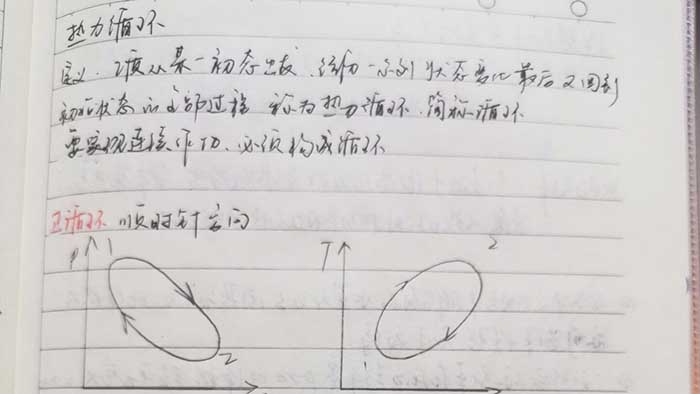 热力循环
定义. 工质从某一初态出发, 经历一系列状态变化最后又回到
初始状态的全部过程 称为热力循环, 简称循环
要实现连续作功, 必须构成循环
正循环 顺时针方向
P 1 T 2
2 1